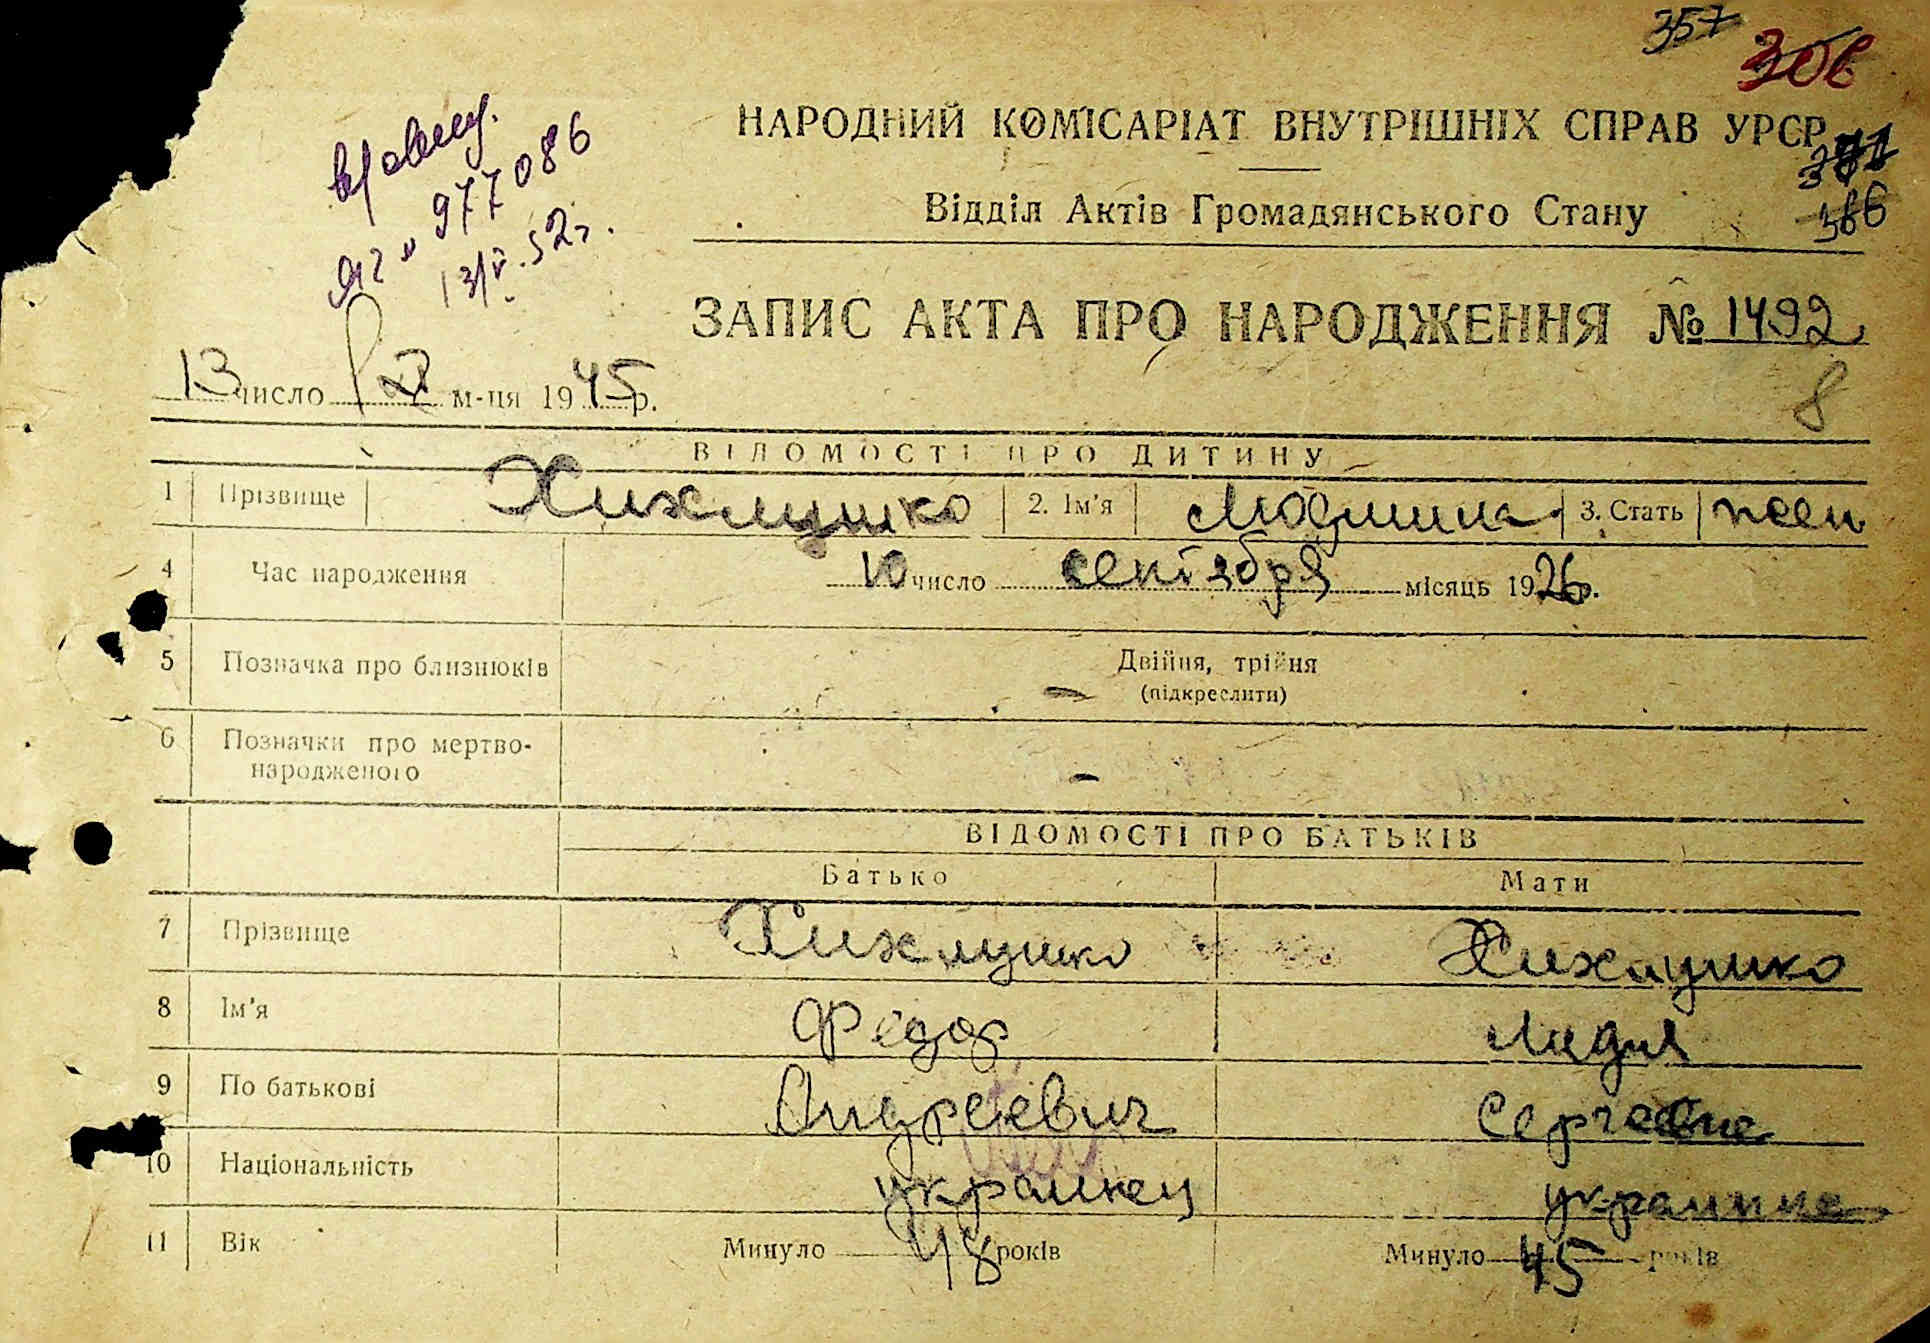 357
306
НАРОДНИЙ КОМІСАРІАТ ВНУТРІШНІХ СПРАВ УРСР
Відділ Актів Громадянського Стану
386
977086
13/V.52г.
ЗАПИС АКТА ПРО НАРОДЖЕННЯ № 1492
13 число м-ця 1945р.
8
ВІДОМОСТІ ПРО ДИТИНУ
1 Прізвище Хихлушко 2. Ім'я Людмила 3. Стать жен
4 Час народження 10 число сентября місяць 1926р.
5 Позначка про близнюків Двійня, трійня
(підкреслити)
6 Позначки про мертво-
народженого -
ВІДОМОСТІ ПРО БАТЬКІВ
Батько Мати
7 Прізвище Хихлушко Хихлушко
8 Ім'я Федор Лидия
9 По батькові Андреевич Сергеевна
10 Національність украинец украинка
11 Вік Минуло 48 років Минуло 45 років